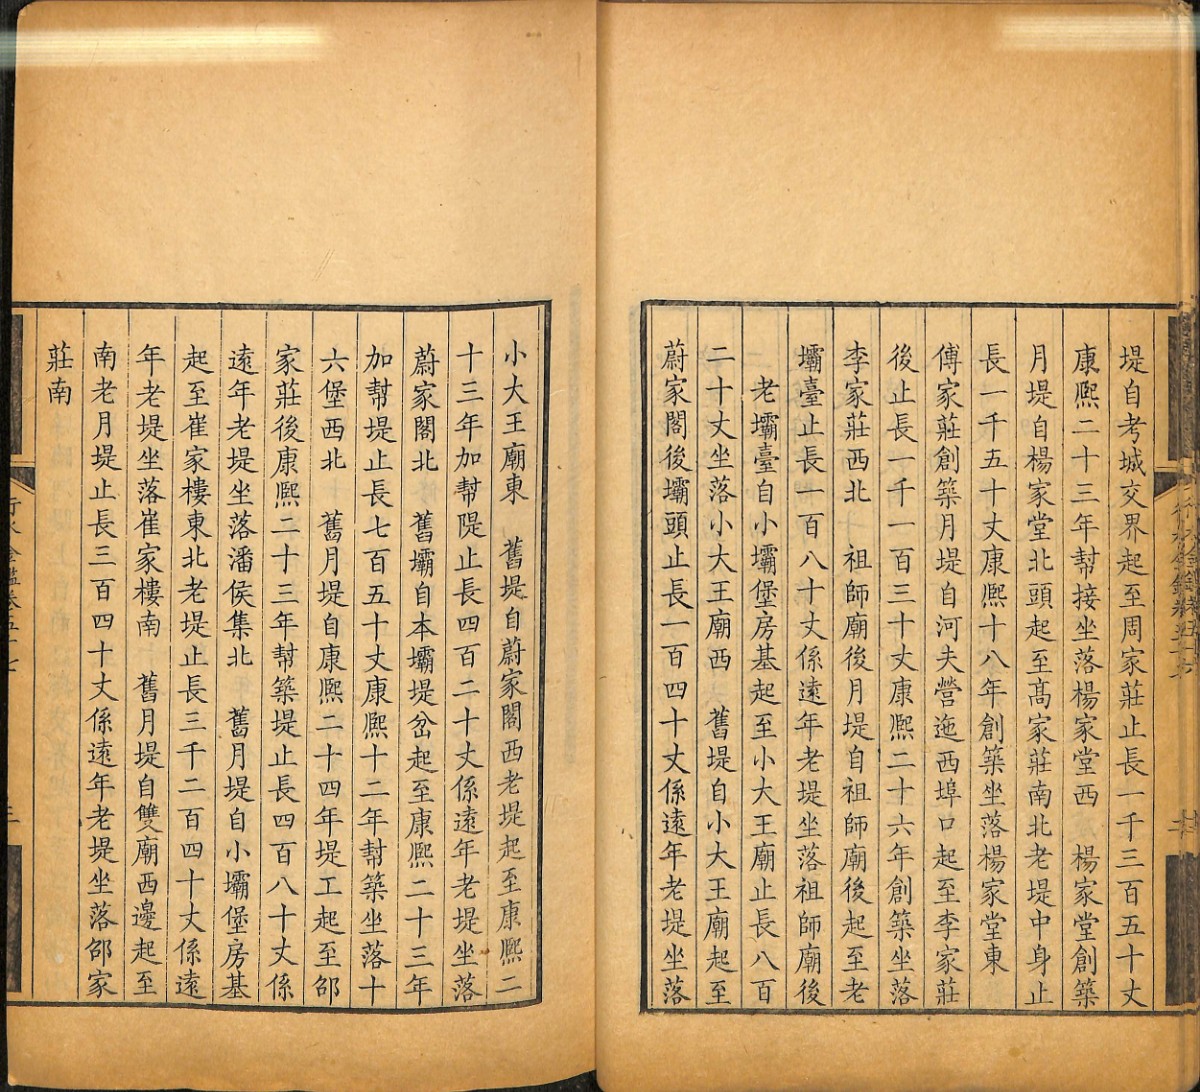 堤自考城交界起至周家莊止長一千三百五十丈
康熙二十三年幫接坐落楊家堂西　楊家堂創築
月堤自楊家堂北頭起至高家莊南北老堤中身止
長一千五十丈康熙十八年創築坐落楊家堂東
傅家莊創築月堤自河夫營迤西埠口起至李家莊
後止長一千一百三十丈康熙二十六年創築坐落
李家莊西北　祖師廟後月堤自祖師廟後起至老
壩臺止長一百八十丈係遠年老堤坐落祖師廟後
老壩臺自小壩堡房基起至小大王廟止長八百
二十丈坐落小大王廟西　舊堤自小大王廟起至
蔚家閣後壩頭止長一百四十丈係遠年老堤坐落
小大王廟東　舊堤自蔚家閣西老堤起至康熙二
十三年加幫隄止長四百二十丈係遠年老堤坐落
蔚家閣北　舊壩自本壩堤岔起至康熙二十三年
加幫堤止長七百五十丈康熙十二年幫築坐落十
六堡西北　舊月堤自康熙二十四年堤工起至邵
家莊後康熙二十三年幫築堤止長四百八十丈係
遠年老堤坐落潘侯集北　舊月堤自小壩堡房基
起至崔家樓東北老堤止長三千二百四十丈係遠
年老堤坐落崔家樓南　舊月堤自雙廟西邊起至
南老月堤止長三百四十丈係遠年老堤坐落邵家
莊南